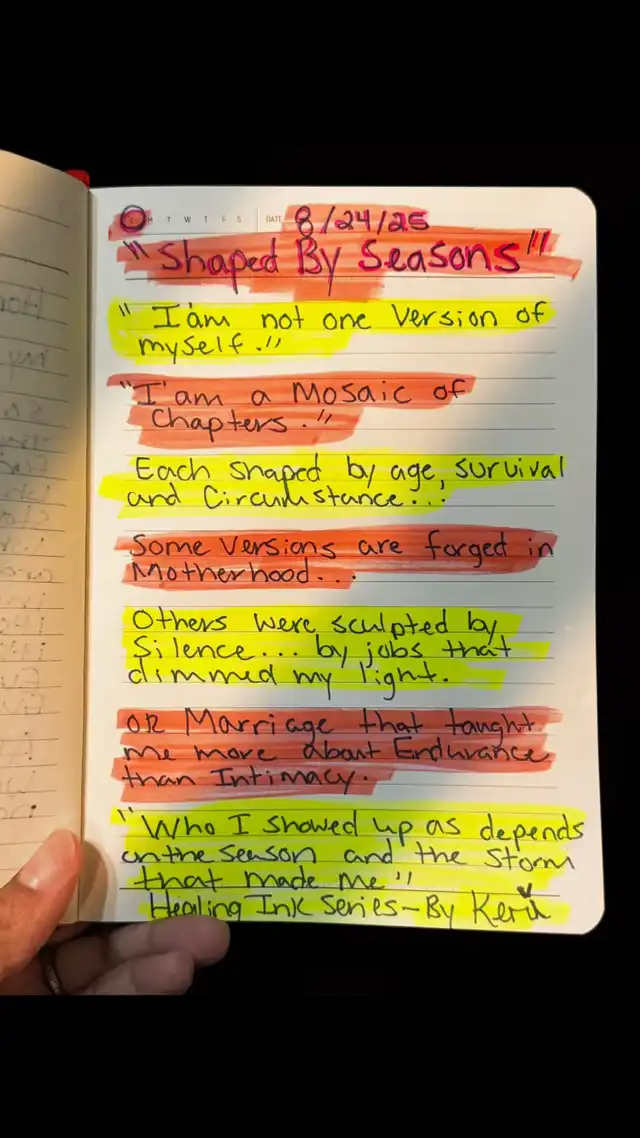 M T W T F S DATE 8/24/25
"Shaped By Seasons"
"I'am not one version of
myself."
"I'am a Mosaic of
Chapters."
Each shaped by age, survival
and Circumstance...
Some versions are forged in
Motherhood...
Others were sculpted by
Silence... by jobs that
dimmed my light.
OR Marriage that taught
me more about Endurance
than Intimacy.
"Who I showed up as depends
on the season and the storm
that made me"
Healing Ink Series - By